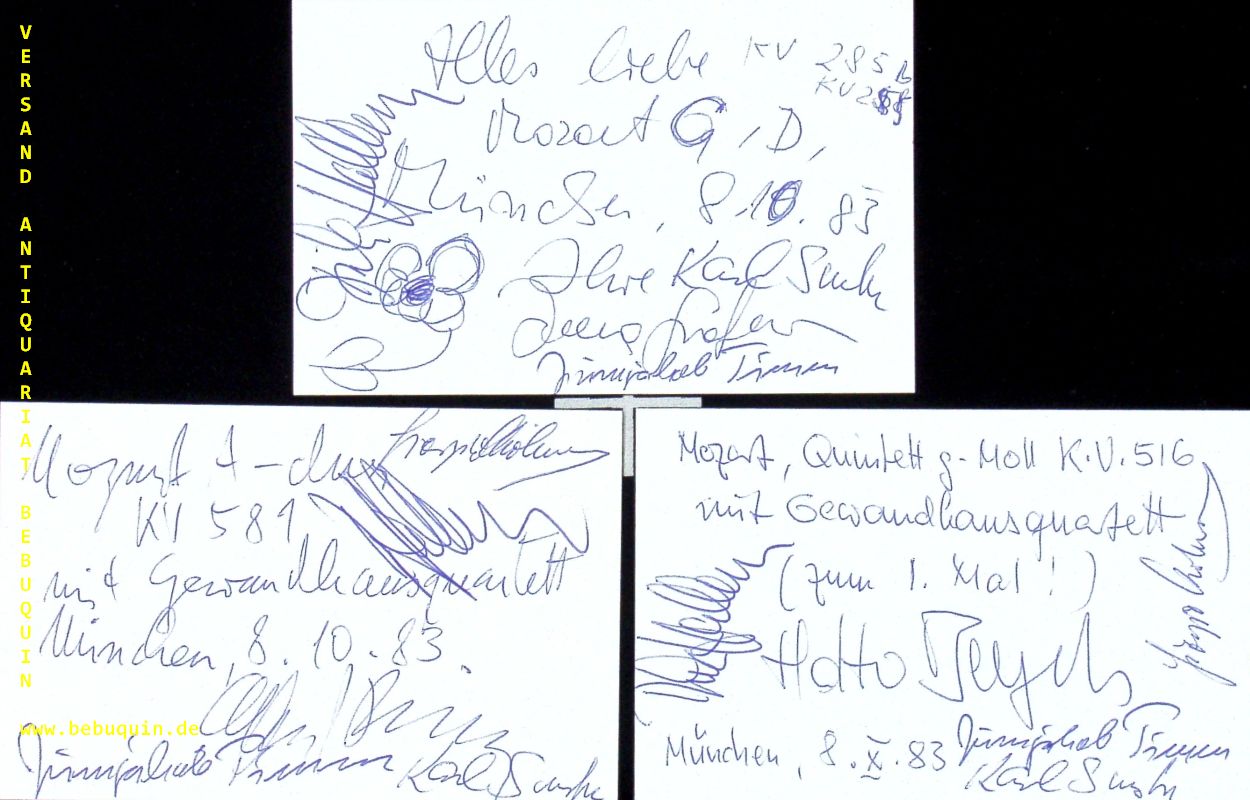 VERSAND ANTIQUARIAT BEBUQUIN
www.bebuquin.de
Alles liebe KV 285 b
KV 285
Mozart G, D,
München, 8.10.83
Ihre Karl Suske
Jürnjakob Timm
Mozart A-dur
KV 581
mit Gewandhausquartett
München, 8.10.83.
Jürnjakob Timm Karl Suske
Mozart, Quintett g-Moll K.V.516
mit Gewandhausquartett
(zum 1. Mal!)
Hatto Beyerle
München, 8.X.83 Jürnjakob Timm
Karl Suske